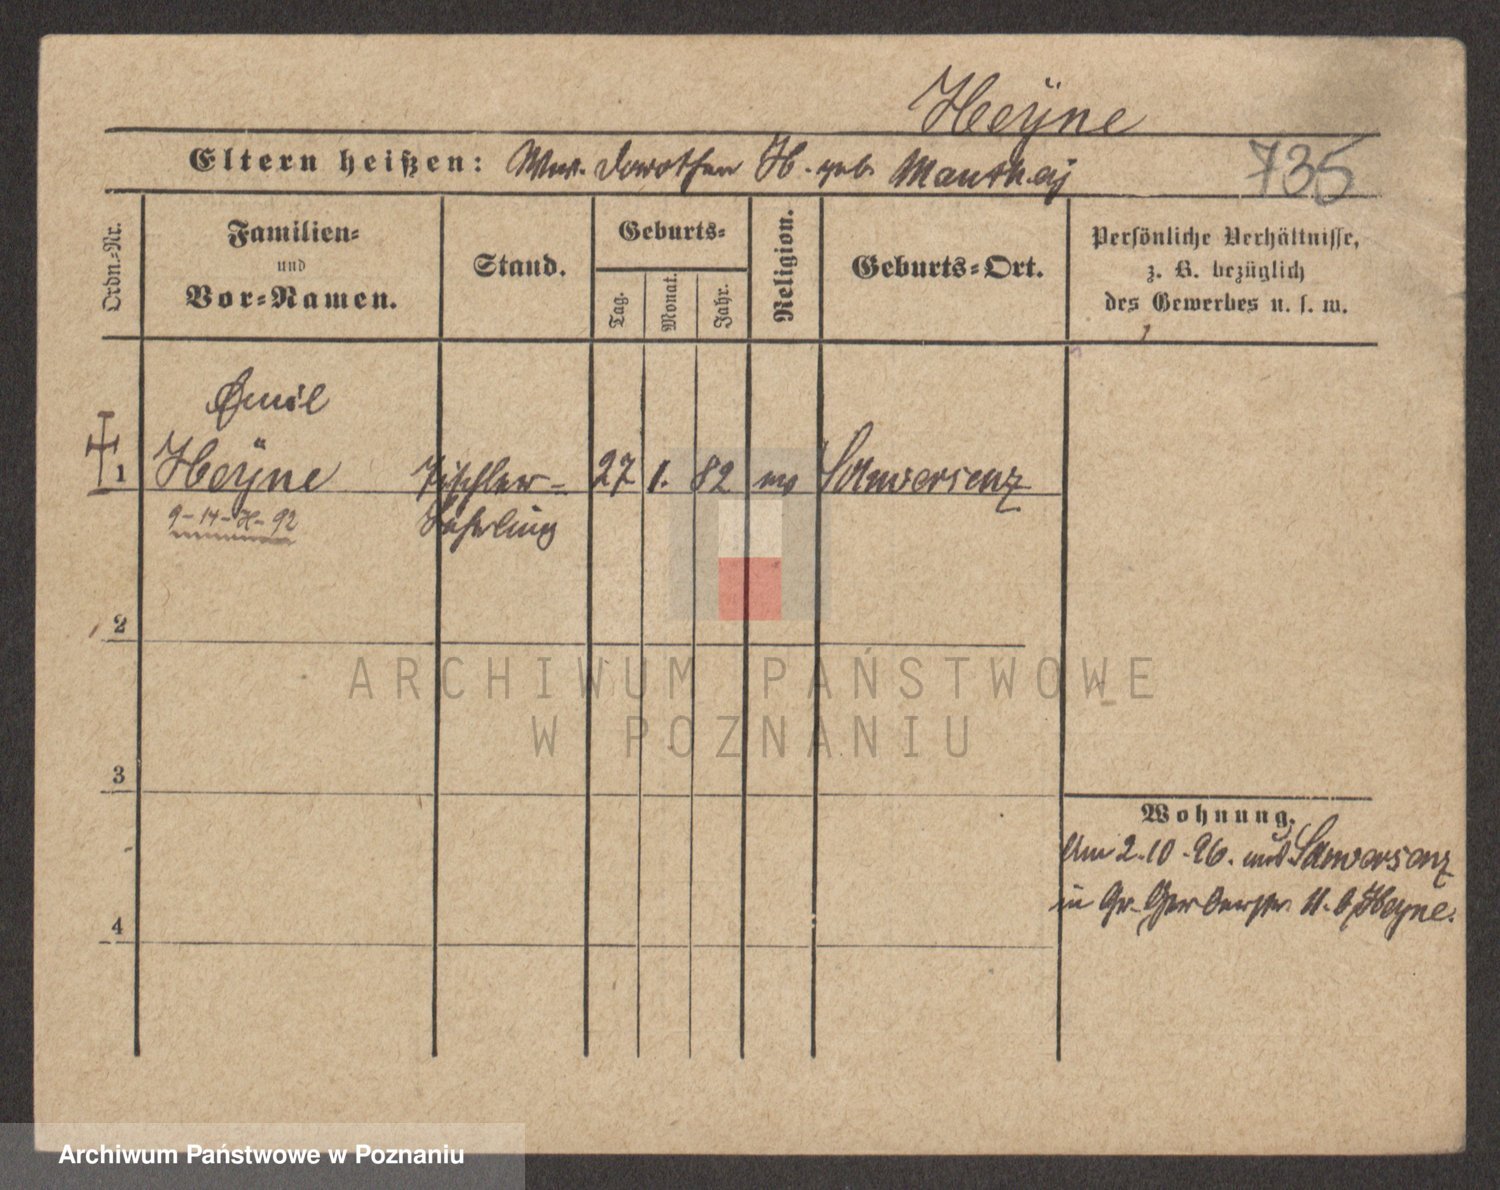 Heÿne
Eltern heißen: Wwe. Dorothea H. geb. Manthey
735
Ordn.-Nr.
Familien-
und
Vor-Namen.
Stand.
Geburts-
Tag.
Monat.
Jahr.
Religion.
Geburts-Ort.
Persönliche Verhältnisse,
z. B. bezüglich
des Gewerbes u. s. w.
Emil
1 Heÿne Tischler- 27 1. 82 ev Schwersenz
Lehrling
2
3
4
Wohnung.
Am 2.10.96. aus Schwersenz
in Gr. Gerberstr. 11. b/Heyne.
ARCHIWUM PAŃSTWOWE
W POZNANIU
Archiwum Państwowe w Poznaniu